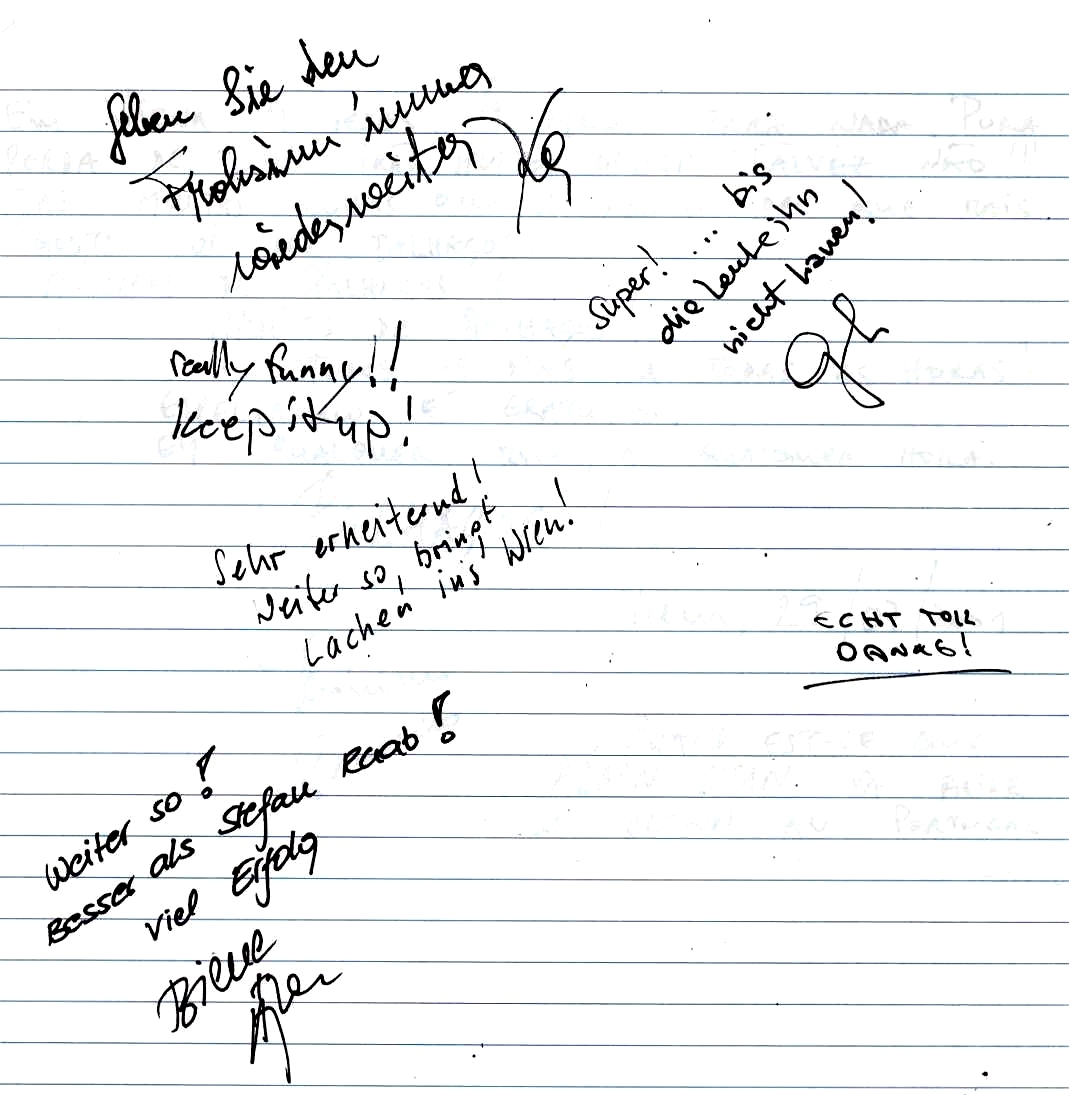 Geben Sie den
Frohsinn immer
wieder weiter
Super! ... bis
die Leute ihn
nicht hauen!
really funny!!
keep it up!
Sehr erheiternd!
Weiter so, bringt
Lachen ins Wien!
ECHT TOLL
DANKE!
Weiter so!
Besser als Stefan Raab!
viel Erfolg